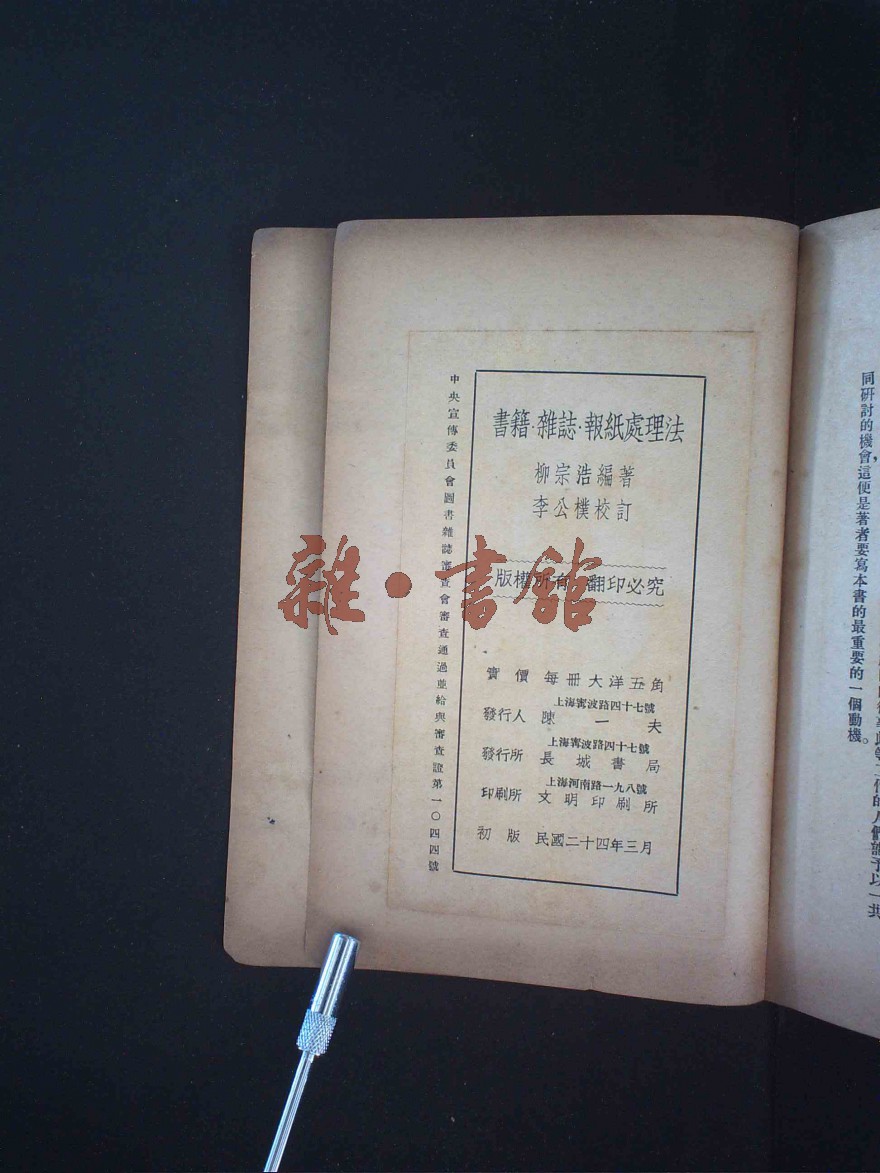 書籍·雜誌·報紙處理法
柳宗浩編著
李公樸校訂
版權所有 翻印必究
實價 每冊大洋五角
上海寗波路四十七號
發行人 陳一夫
上海寗波路四十七號
發行所 長城書局
上海河南路一九八號
印刷所 文明印刷所
初版 民國二十四年三月
中央宣傳委員會圖書雜誌審查會審查通過並給與審查證第一〇四四號
雜·書館
同研討的機會，這便是著者要寫本書的最重要的一個動機。